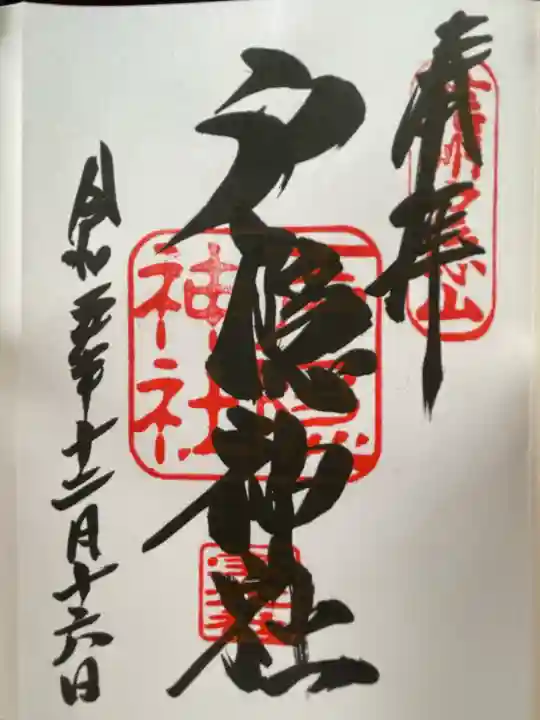 奉拝
戸隠神社
令和五年十二月十六日
信州戸隠山
戸隠神社